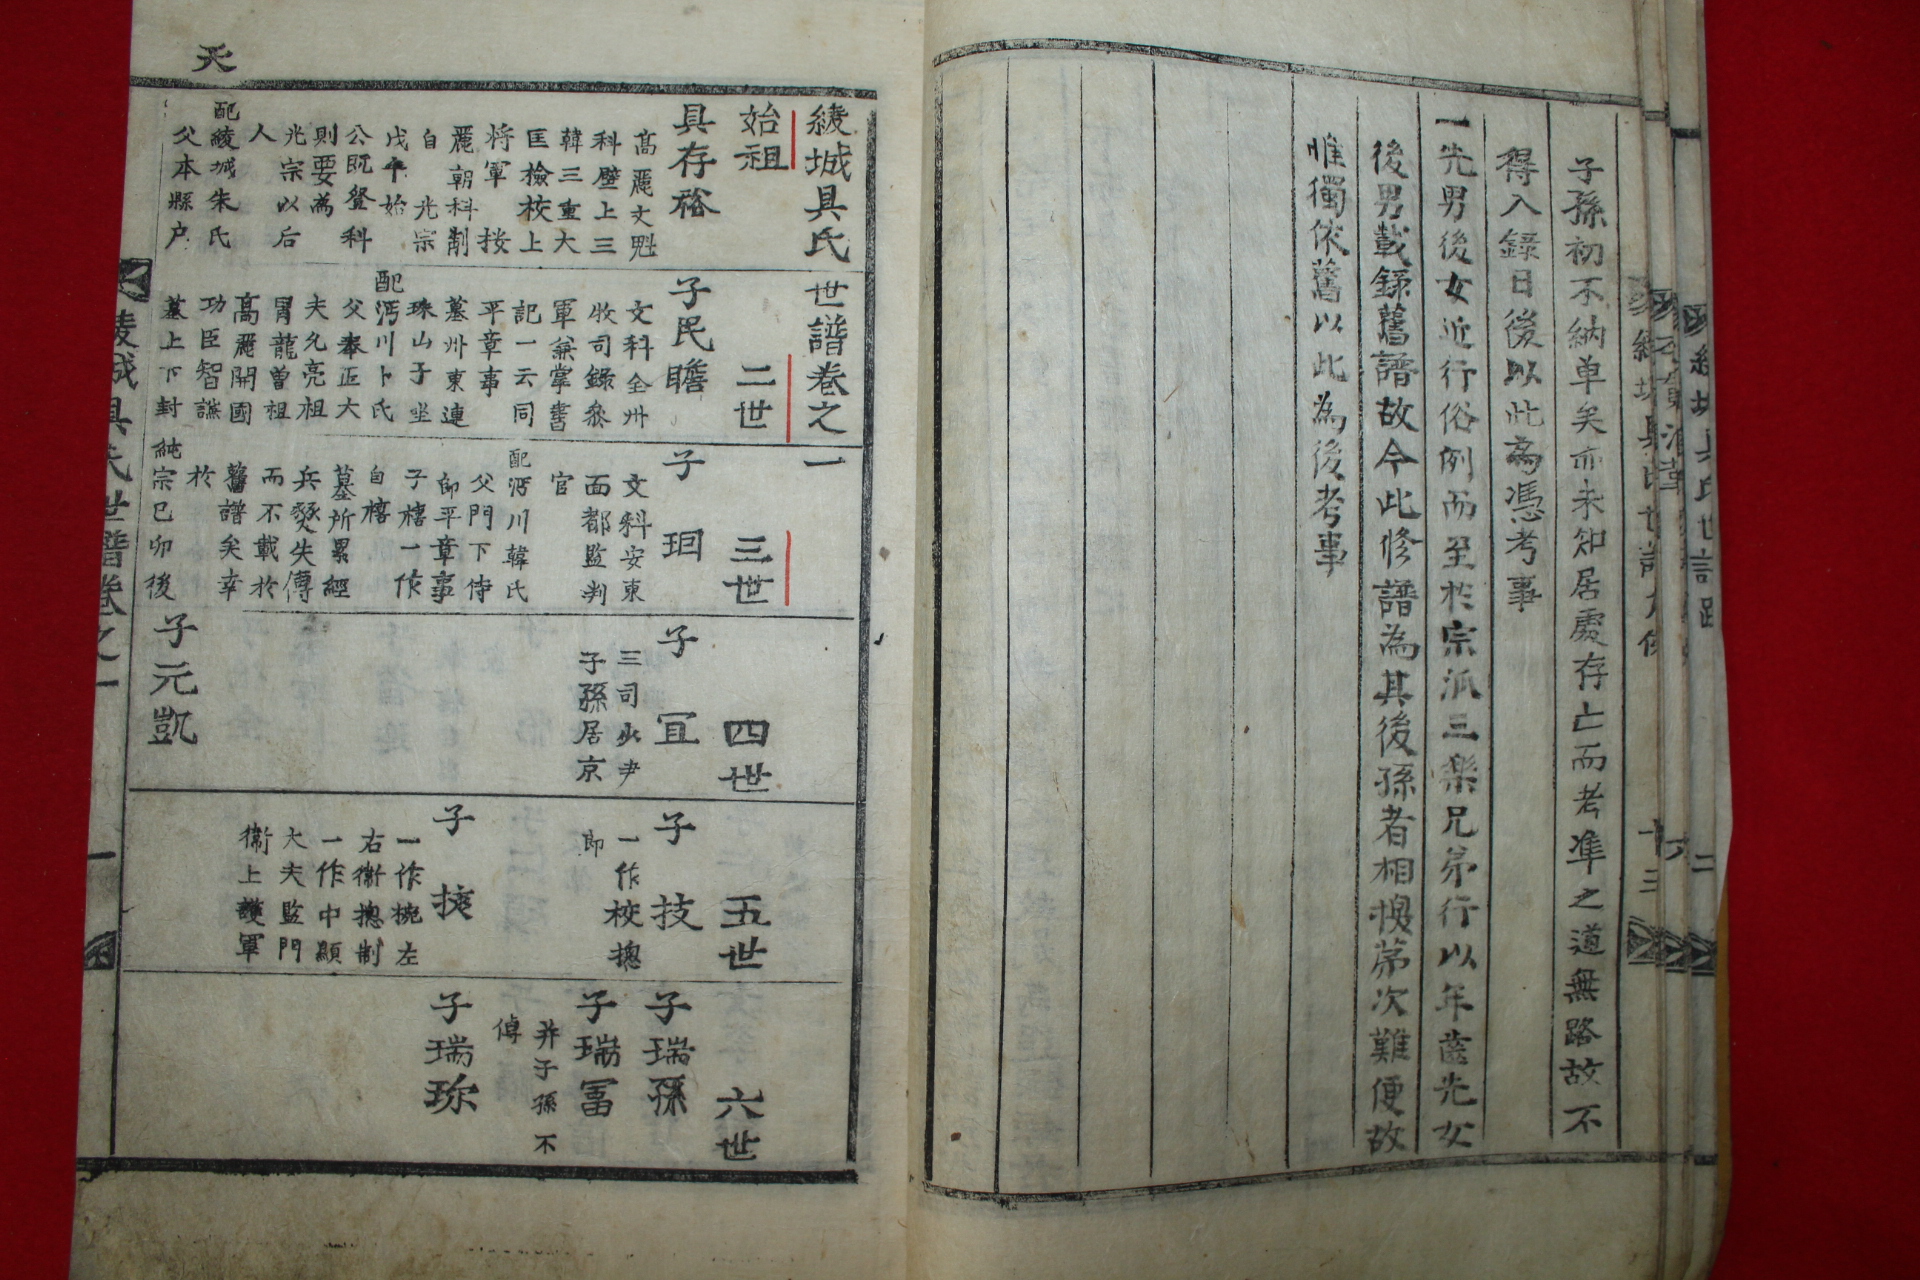 子孫初不納單矣而未知居處存亡而考準之道無路故不
得入錄日後以此為憑考事
一先男後女近行俗例而至於宗派三樂兄弟行以年齒先女
後男載錄舊譜故今此修譜為其後孫者相換第次難便故
惟獨依舊以此為後考事
天
綾城具氏世譜卷之一
始祖
二世
三世
四世
五世
六世
具存裕
高麗文魁
科壁上三
韓三重大
匡檢校上
將軍 按
麗朝科制
自 光宗
戊午始
公旣登科
則要為
光宗以后
人
配綾城朱氏
父本縣戶
子民瞻
文科全州
牧司錄參
軍兼掌書
記一云同
平章事
墓州東連
珠山子坐
配沔川卜氏
父奉正大
夫允亮祖
冑龍曾祖
高麗開國
功臣智謙
墓上下封
子珚
文科安東
面都監判
官
配沔川韓氏
父門下侍
郎平章事
子樁一作
自樁
墓所累經
兵燹失傳
而不載於
舊譜矣幸
於
純宗己卯後
子宜
三司少尹
子孫居京
子元凱
子技
一作校摠
郎
子㧡
一作梡左
右衛摠制
一作中顯
大夫監門
衛上護軍
子瑞孫
子瑞富
并子孫不
傳
子瑞珎
綾城具氏世譜卷之一
一